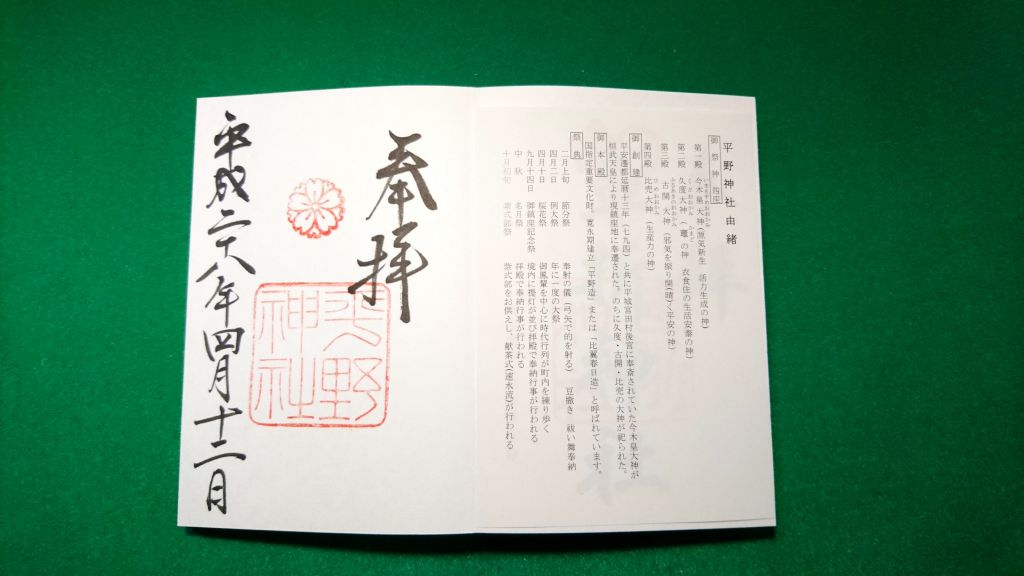 平野神社由緒
御祭神四座
第一殿 今木皇大神(源気新生 活力生成の神)
いまきすめおおかみ
第二殿 久度大神(竈の神 衣食住の生活安泰の神)
くどおおかみ かまど
第三殿 古開大神(邪気を振り開(晴)く平安の神)
ふるあきのおおかみ
第四殿 比売大神(生産力の神)
ひめおおかみ
御創建
平安遷都延暦十三年(七九四)と共に平城宮田村後宮に奉斎されていた今木皇大神が
桓武天皇により現鎮座地に奉遷された。のちに久度・古開・比売の大神が祀られた。
御本殿
国指定重要文化財。寛永期建立「平野造」または「比翼春日造」と呼ばれています。
祭典
二月上旬 節分祭 奉射の儀(弓矢で的を射る) 豆撒き 祓い舞奉納
四月二日 例大祭 年に一度の大祭
四月十日 桜花祭 御鳳輦を中心に時代行列が町内を練り歩く
九月十四日 御鎮座記念祭 境内に提灯が並び拝殿で奉納行事が行われる
中秋 名月祭 拝殿で奉納行事が行われる
十月初旬 紫式部祭 紫式部をお供えし、献茶式(速水流)が行われる
奉拝
平野
神社
平成二十八年四月十二日